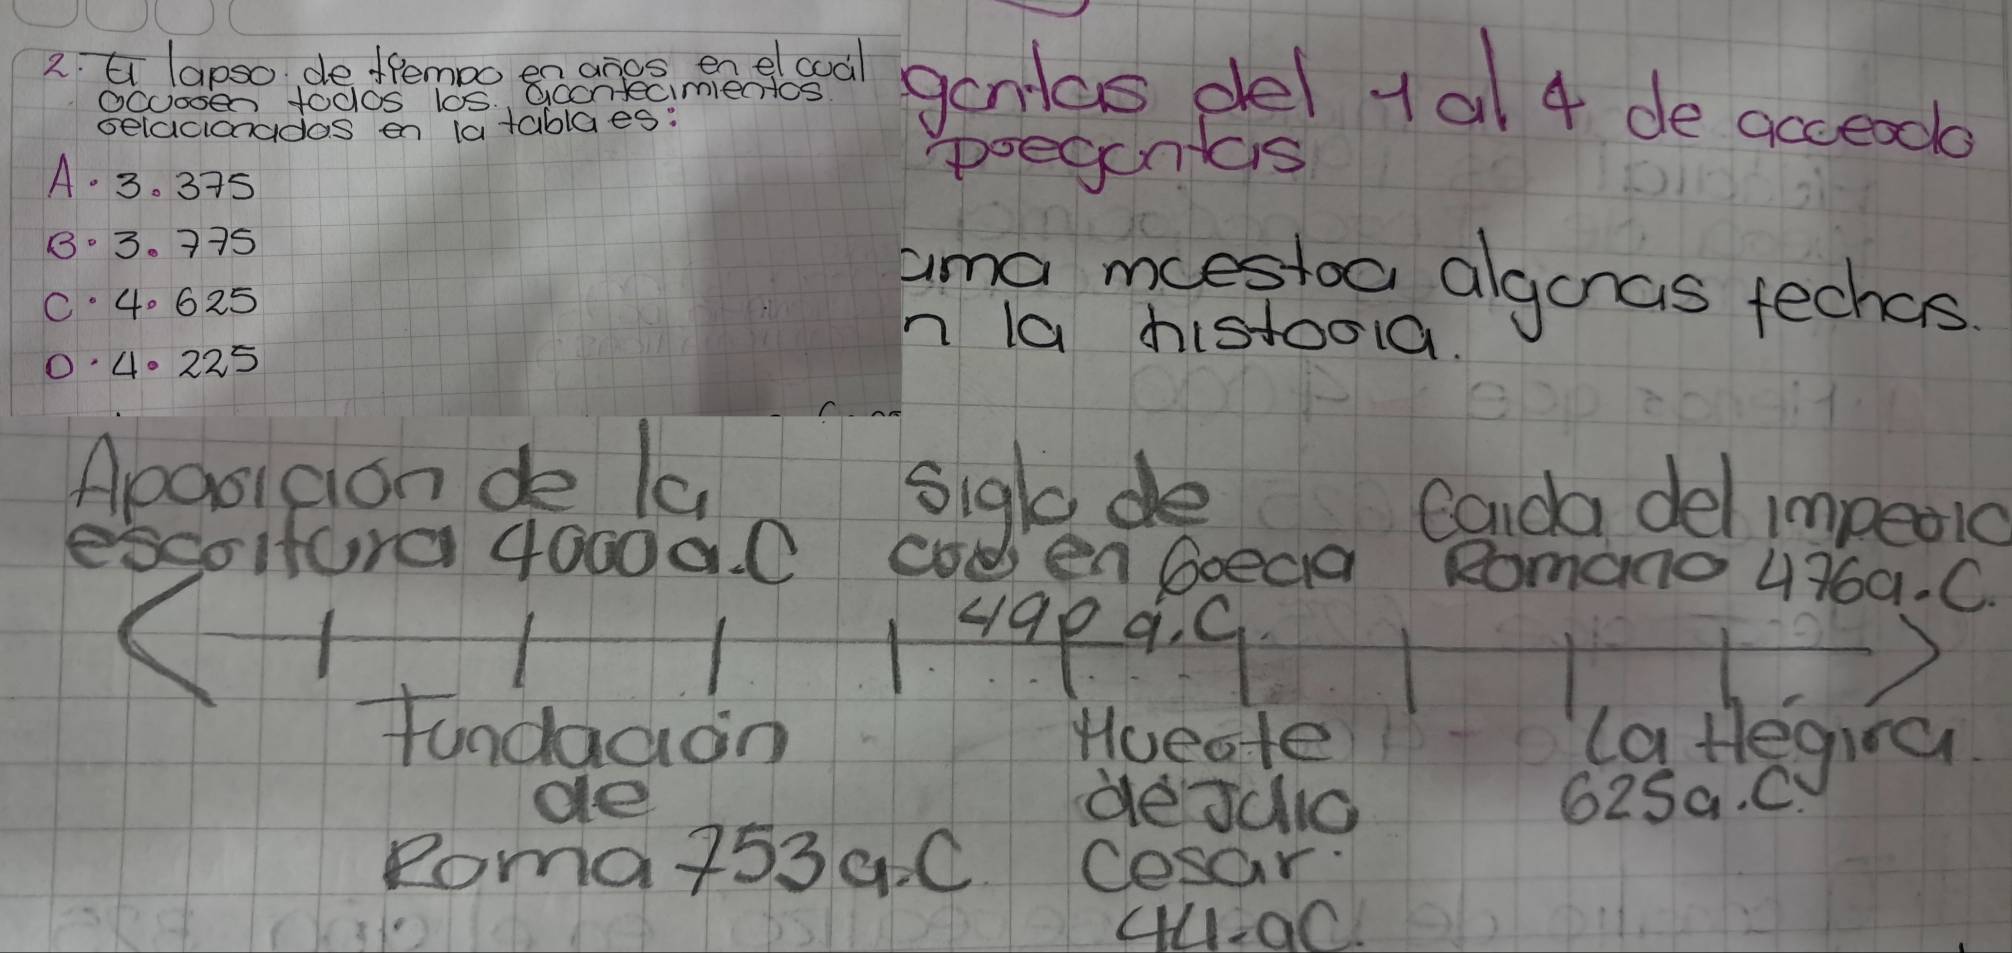 2. El lapso de tiempo en años en el cual
ocurren todos los acontecimientos
relacionados en la tabla es:
A. 3.375
B. 3.775
C. 4.625
D. 4.225
guntas del 1 al 4 de acuerdo
preguntas
ama muestra algunas fechas.
n la historia.
Aparición de la
escritura 4000 a.C
Siglo de
en Grecia
490 a.C.
Caida del imperio
Romano 476 a.C.
Fundación
de
Roma 753 a.C
Muerte
de Julio
Cesar.
44 - aC.
la Hégira
625 a.C.